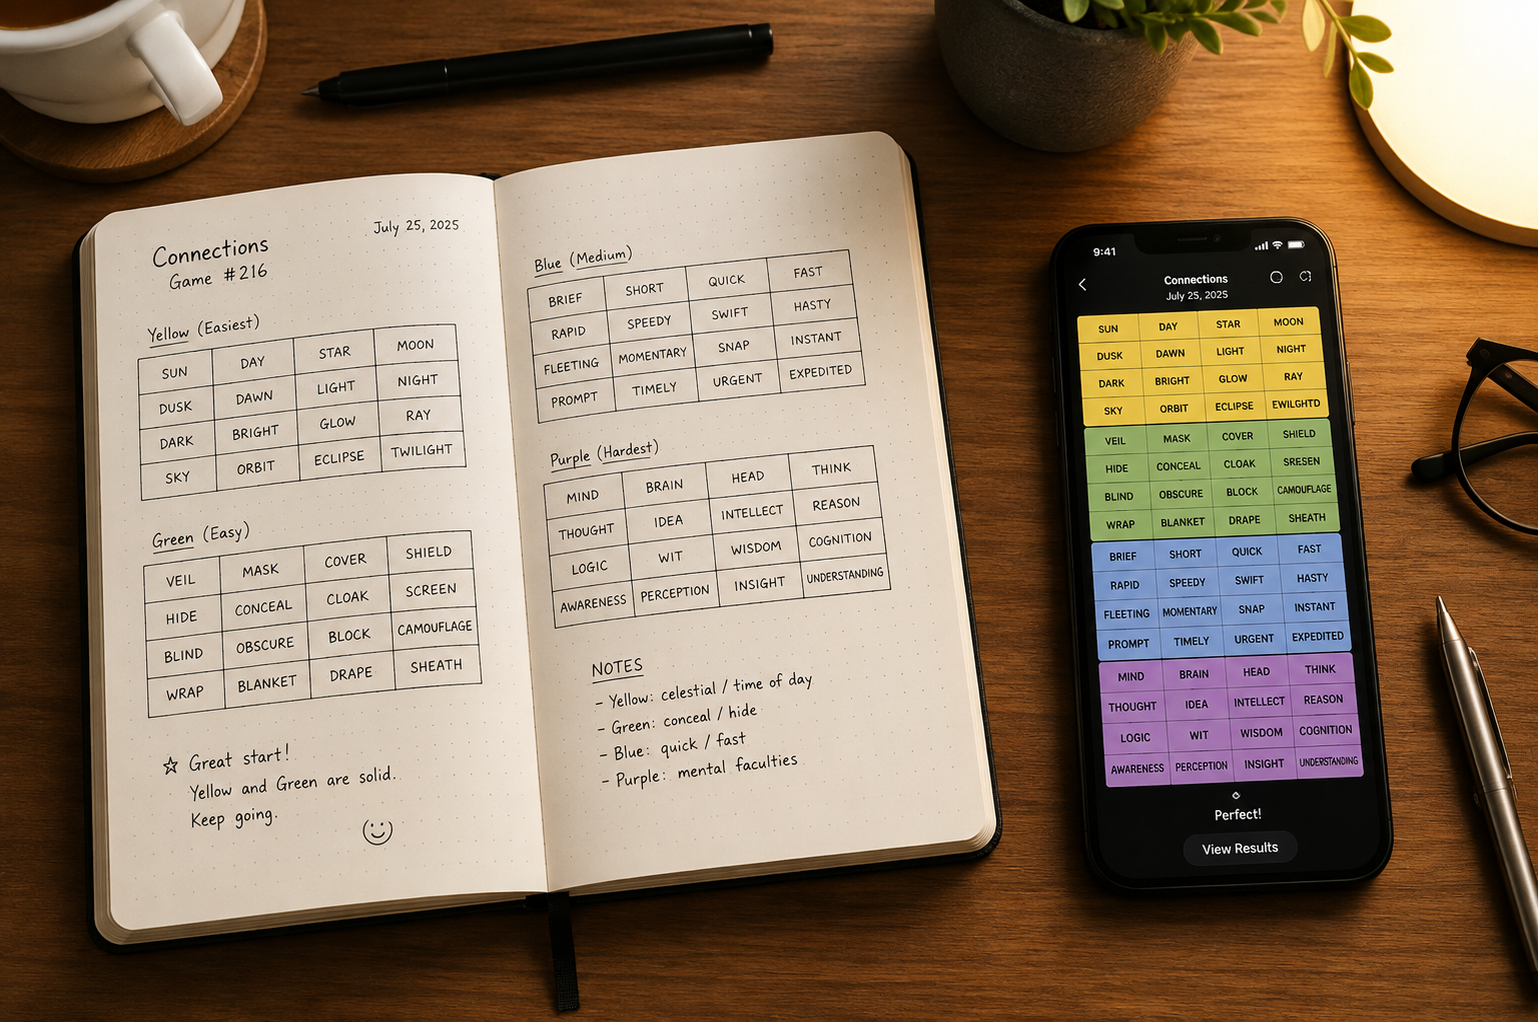 July 25, 2025
Connections
Game #216
Yellow (Easiest)
SUN DAY STAR MOON
DUSK DAWN LIGHT NIGHT
DARK BRIGHT GLOW RAY
SKY ORBIT ECLIPSE TWILIGHT
Green (Easy)
VEIL MASK COVER SHIELD
HIDE CONCEAL CLOAK SCREEN
BLIND OBSCURE BLOCK CAMOUFLAGE
WRAP BLANKET DRAPE SHEATH
☆ Great start!
Yellow and Green are solid.
Keep going.
Blue (Medium)
BRIEF SHORT QUICK FAST
RAPID SPEEDY SWIFT HASTY
FLEETING MOMENTARY SNAP INSTANT
PROMPT TIMELY URGENT EXPEDITED
Purple (Hardest)
MIND BRAIN HEAD THINK
THOUGHT IDEA INTELLECT REASON
LOGIC WIT WISDOM COGNITION
AWARENESS PERCEPTION INSIGHT UNDERSTANDING
NOTES
- Yellow: celestial / time of day
- Green: conceal / hide
- Blue: quick / fast
- Purple: mental faculties
9:41
Connections
July 25, 2025
SUN DAY STAR MOON
DUSK DAWN LIGHT NIGHT
DARK BRIGHT GLOW RAY
SKY ORBIT ECLIPSE EWILGHTD
VEIL MASK COVER SHIELD
HIDE CONCEAL CLOAK SRESEN
BLIND OBSCURE BLOCK CAMOUFLAGE
WRAP BLANKET DRAPE SHEATH
BRIEF SHORT QUICK FAST
RAPID SPEEDY SWIFT HASTY
FLEETING MOMENTARY SNAP INSTANT
PROMPT TIMELY URGENT EXPEDITED
MIND BRAIN HEAD THINK
THOUGHT IDEA INTELLECT REASON
LOGIC WIT WISDOM COGNITION
AWARENESS PERCEPTION INSIGHT UNDERSTANDING
Perfect!
View Results